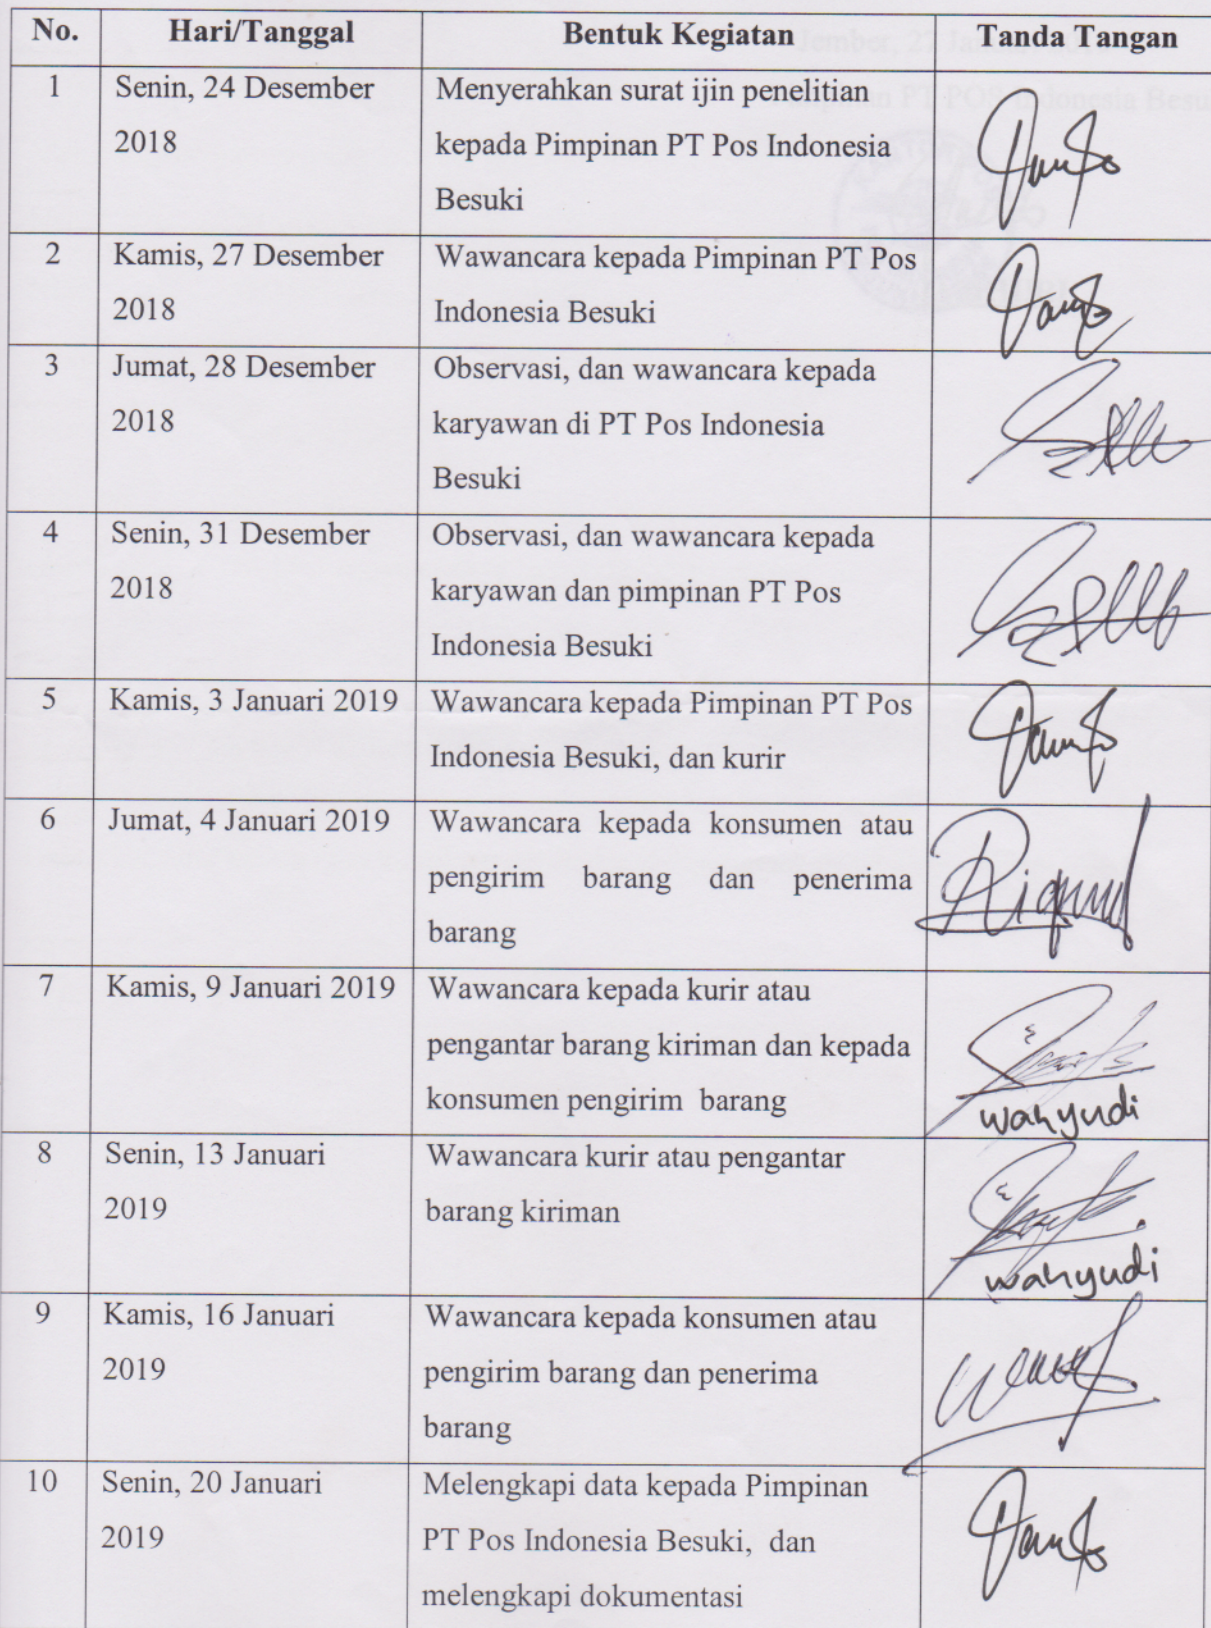 No. Hari/Tanggal Bentuk Kegiatan Tanda Tangan
1 Senin, 24 Desember Menyerahkan surat ijin penelitian
2018 kepada Pimpinan PT Pos Indonesia
Besuki
2 Kamis, 27 Desember Wawancara kepada Pimpinan PT Pos
2018 Indonesia Besuki
3 Jumat, 28 Desember Observasi, dan wawancara kepada
2018 karyawan di PT Pos Indonesia
Besuki
4 Senin, 31 Desember Observasi, dan wawancara kepada
2018 karyawan dan pimpinan PT Pos
Indonesia Besuki
5 Kamis, 3 Januari 2019 Wawancara kepada Pimpinan PT Pos
Indonesia Besuki, dan kurir
6 Jumat, 4 Januari 2019 Wawancara kepada konsumen atau
pengirim barang dan penerima
barang
7 Kamis, 9 Januari 2019 Wawancara kepada kurir atau
pengantar barang kiriman dan kepada
konsumen pengirim barang
wahyudi
8 Senin, 13 Januari Wawancara kurir atau pengantar
2019 barang kiriman
wahyudi
9 Kamis, 16 Januari Wawancara kepada konsumen atau
2019 pengirim barang dan penerima
barang
10 Senin, 20 Januari Melengkapi data kepada Pimpinan
2019 PT Pos Indonesia Besuki, dan
melengkapi dokumentasi